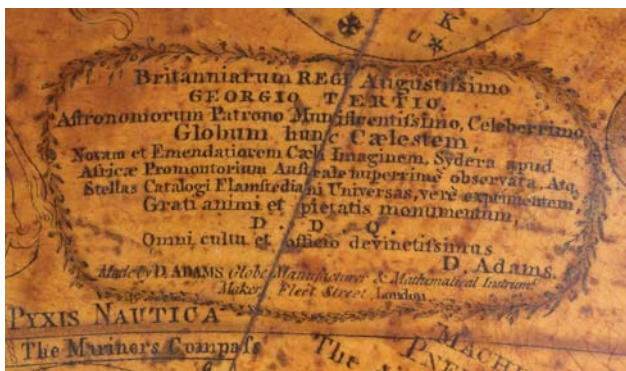 K
Britanniarum REGI Augustiſsimo
GEORGIO TERTIO.
Aſtronomiorum Patrono Munificentiſsimo, Celeberrimo
Globum hunc Cæleſtem,
Novam et Emendatiorem Cæli Imaginem, Sydera apud
Africæ Promontorium Auſtrale nuperrime obſervata, Atq
Stellas Catalogi Flamſtediani Universas, verè exprimentem,
Grati animi et pietatis monumentum,
D. D. Q.
Omni cultu et officio devinctiſsimus
D. Adams.
Made by D. ADAMS Globe Manufacturer & Mathematical Inſtrumt
Maker, Fleet Street, London.
PYXIS NAUTICA
The Mariners Compaſs
The
MACHI
PNE